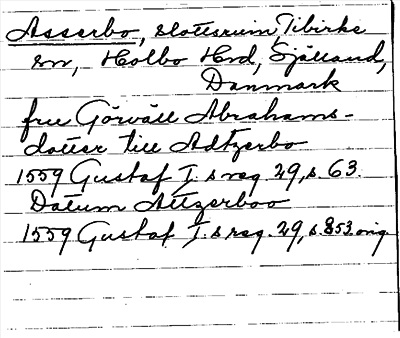 Asserbo, slottsruin, Tibirke
sn, Holbo Hrd, Själland,
Danmark
fru Görväll Abrahams-
dotter till Adtzerbo
1559 Gustaf I.s reg. 29, s. 63.
Datum Attzerboo
1559 Gustaf I.s reg. 29, s. 853 orig